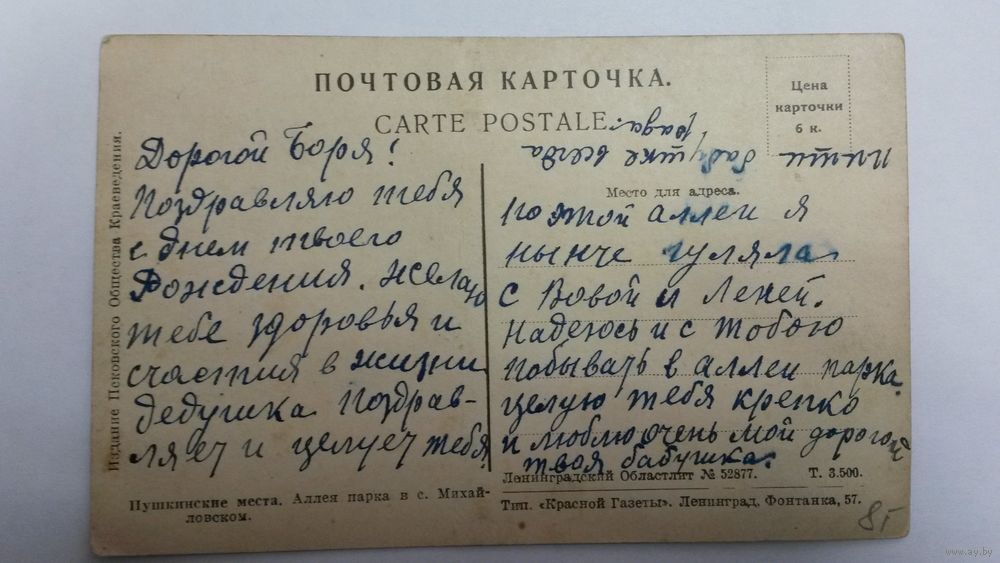 ПОЧТОВАЯ КАРТОЧКА.
CARTE POSTALE.
Цена
карточки
6 к.
Дорогой Боря!
Поздравляю тебя
с днем твоего
Рождения. Желаю
тебе здоровья и
счастия в жизни
Дедушка поздрав-
ляет и целует тебя.
Место для адреса.
По этой аллеи я
нынче гуляла
с Вовой и Леней.
Надеюсь и с тобою
побывать в аллеи парка.
целую тебя крепко
и люблю очень мой дорогой
твоя бабушка.
бабушке всегда
рады.
Издание Псковского Общества Краеведения.
Пушкинские места. Аллея парка в с. Михай-
ловском.
Ленинградский Областлит № 52877. Т. 3.500.
Тип. «Красной Газеты». Ленинград, Фонтанка, 57.
www.ay.by